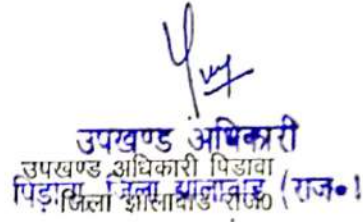 उपखण्ड अधिकारी
उपखण्ड अधिकारी पिडावा
पिड़ावा जिला झालावाड़ (राज०)
जिला झालावाड राज०